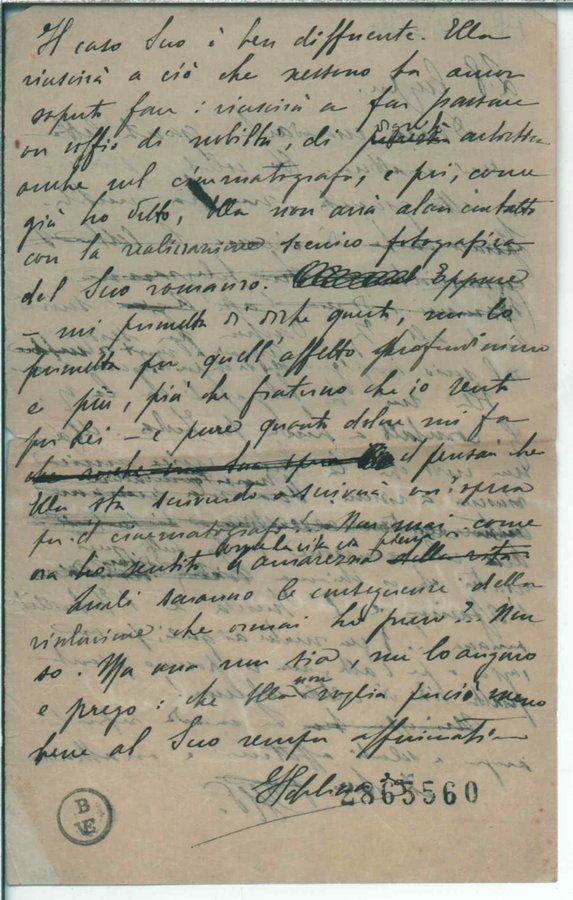 Il caso Suo è ben differente. Ella
riuscirà a ciò che nessuno ha ancor
saputo fare: riuscirà a far passare
un soffio di nobiltà, di dignità artistica
anche nel cinematografo, e poi, come
già ho detto, Ella non avrà alcun contatto
con la realizzazione tecnico fotografica
del Suo romanzo. Eppure
– mi permetta di dirle questo, me lo
permetta per quell'affetto profondissimo
e più, più che fraterno che io sento
per Lei – e pure quanto dolore mi fa
il pensar che
Ella sta scrivendo o scriverà un'opera
per il cinematografo! Non mai come
ora ho sentito amarezza della vita.
Quali saranno le conseguenze della
risoluzione che ormai ho preso? Non
so. Ma una non sia, me lo auguro
e prego: che Ella non voglia perciò meno
bene al Suo sempre
2865560
B
VE